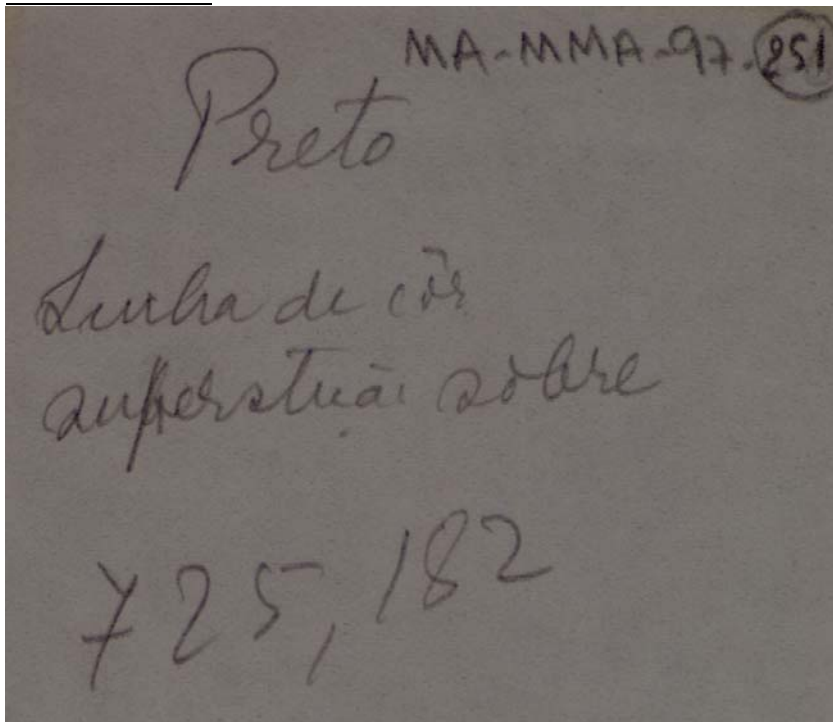 MA-MMA-97-251
Preto
Linha de côr
superstição sôbre
725, 182